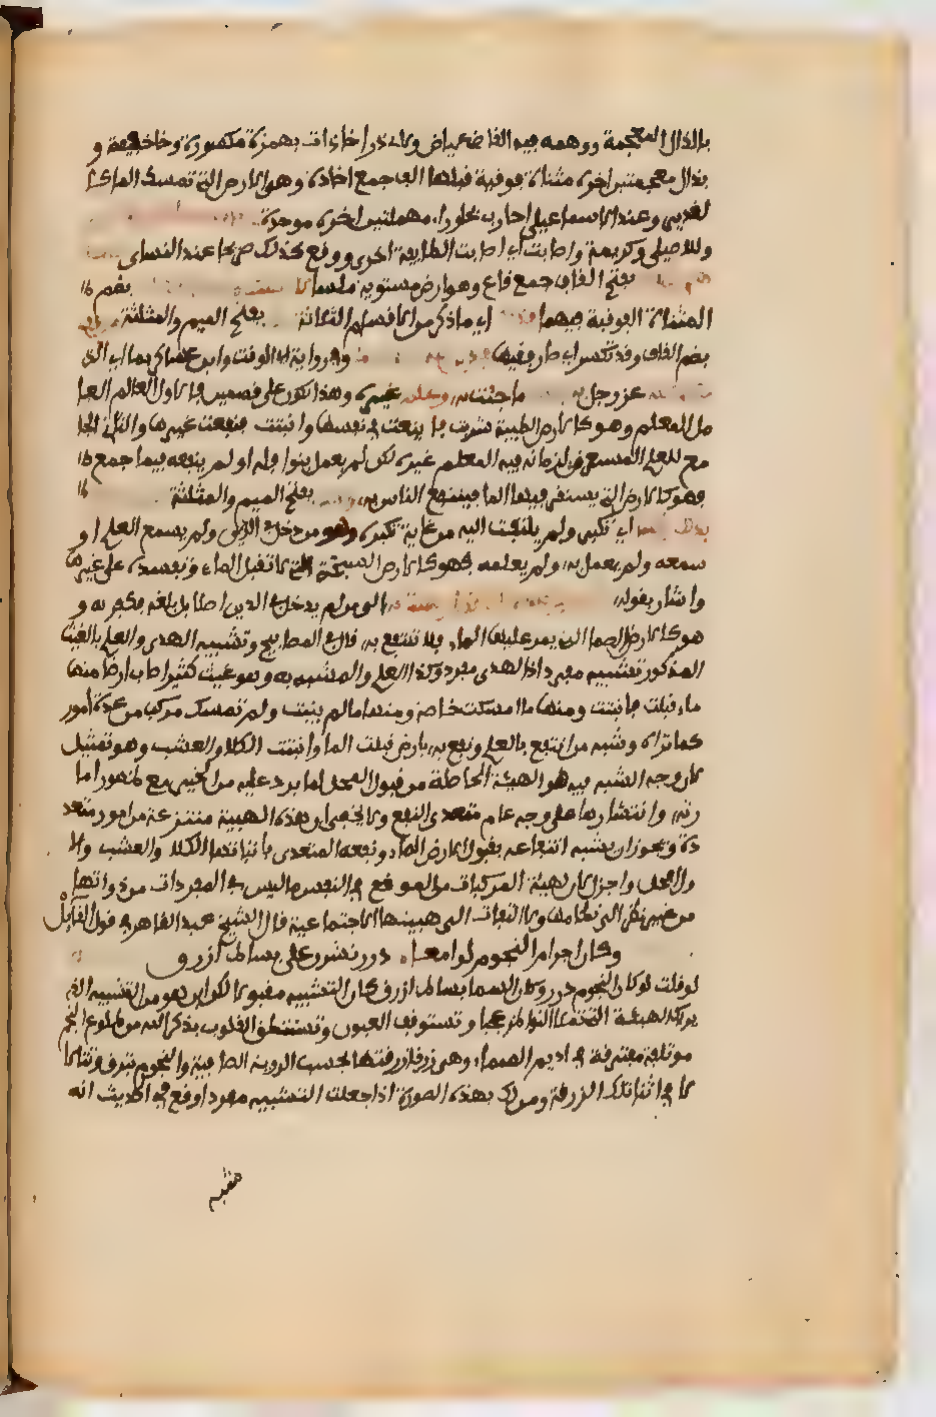 بالذال المعجمة ووهمه فيه القاضي عياض ولابي ذر اخاذات بهمزة مكسورة وخاء خفيفة و
بذال معجمتين اخره مثناة فوقية قبلها الف جمع اخاذة وهو الارض التي تمسك الماء
وعند الاسماعيلي احارب بحاء وراء مهملتين اخره موحدة
وللاصيلي وكريمة واصابت اي اصابت الطايفة اخرى ووقع كذلك صريحا عند النساي
بفتح القاف جمع قاع وهو ارض مستوية ملسا بضم
المثناة الفوقية فيهما اي ما ذكر من الاقسام الثلاثة بفتح الميم والمثلثة
بضم القاف وقد تكسر اي صار فقيها وفي رواية ابي الوقت وابن عساكر بما اي الذي
عز وجل ما جئت به وعلم غيره وهذا يكون على قسمين الاول العالم العا
مل المعلم وهو كالارض الطيبة شربت فانتفعت في نفسها وانبتت فنفعت غيرها والثاني الجا
مع للعلم المستغرق لزمانه فيه المعلم غيره لكن لم يعمل بنوافله او لم يتفقه فيما جمع
فهو كالارض التي يستقر فيها الماء فينتفع الناس به بفتح الميم والمثلثة
اي تكبر ولم يلتفت اليه من غاية تكبره وهو من دخل في الدين ولم يسمع العلم او
سمعه ولم يعمل به ولم يعلمه فهو كالارض السبخة التي لا تقبل الماء وتفسده على غيرها
واشار بقوله الى من لم يدخل في الدين اصلا بل بلغه فكفر به و
هو كالارض الصما التي يمر عليها الماء فلا تنتفع به قال في المصابيح وتشبيه الهدى والعلم بالغيث
المذكور تشبيه مفرد اذ الهدى مفرد وكذا العلم والمشبه به وهو غيث كثير اصاب ارضا منها
ما قبلت فانبتت ومنها ما امسكت خاصة ومنها ما لم ينبت ولم تمسك مركب من عدة امور
كما تراه وشبه من انتفع بالعلم ونفع به بارض قبلت الماء وانبتت الكلا والعشب وهو تمثيل
لان وجه الشبه فيه هو الهيئة الحاصلة من قبول المحل لما يرد عليه من الخير مع ظهور اما
رته وانتشارها على وجه عام متعدي النفع ولا يخفى ان هذه الهيئة منتزعة من امور متعد
دة ويجوز ان يشبه انتفاعه بقبول الارض الماء ونفعه المتعدي بانباتها الكلا والعشب والا
ول افحل واجزل لان لهيئة المركبات من الموقع في النفس ما ليس في المفردات من ذواتها
من غير نظر الى تضامها ولا التفات الى هيئتها الاجتماعية قال الشيخ عبد القاهر في قول القايل
وكان اجرام النجوم لوامعا درر نشرن على بساط ازرق
لو قلت لو كان النجوم درر وكان السما بساط ازرق كان التشبيه مقبولا لكن اين هو من التشبيه الذي
يريك الهيئة التي تملا النواظر عجبا وتستوقف العيون وتستنطق القلوب بذكر الله من طلوع النجوم
مؤتلفة مفترقة في اديم السماء وهي زرقا زرقتها بحسب الرؤية الصافية والنجوم تبرق وتتلا
لا في اثنا تلك الزرقة ومن لك بهذه الصورة اذا جعلت التشبيه مفردا وقع في الحديث انه